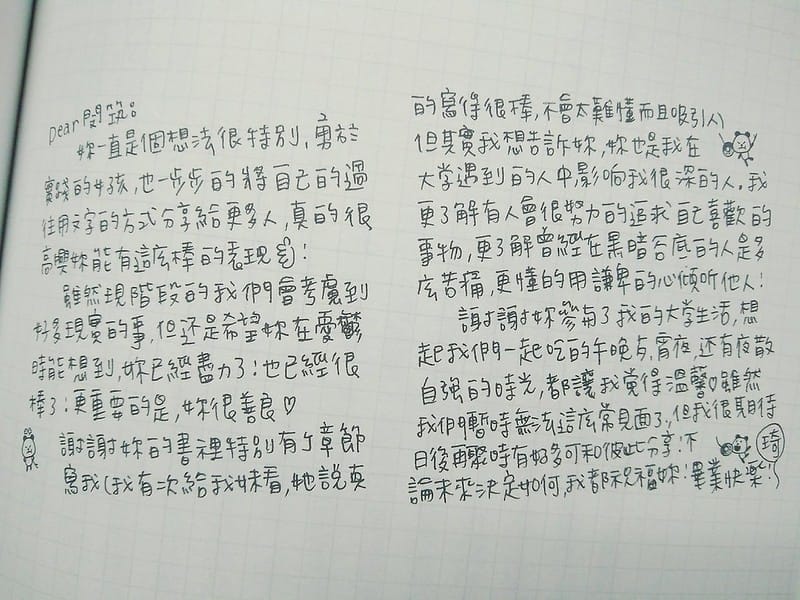 Dear 閔筑：
妳一直是個想法很特別，勇於
實踐的女孩，也一步步的將自己的過
往用文字的方式分享給更多人，真的很
高興妳能有這庅棒的表現！
雖然現階段的我們會考慮到
好多現實的事，但还是希望妳在憂鬱
時能想到，妳已經盡力了！也已經很
棒了！更重要的是，妳很善良♡
謝謝妳的書裡特別有个章節
寫我(我有次給我妹看，她說真
的寫得很棒，不會太難懂而且吸引人)
但其實我想告訴妳，妳也是我在
大学遇到的人中影响我很深的人。我
更了解有人會很努力的追求自己喜歡的
事物，更了解曾經在黑暗谷底的人是多
庅苦痛，更懂的用謙卑的心傾听他人！
謝謝妳參与了我的大学生活，想
起我們一起吃的午晚歺，宵夜，还有夜散
自强的時光，都讓我覚得溫馨♡雖然
我們暫時無法這庅常見面了，但我很期待
日後再聚時有好多可和彼此分享！不
論未來決定如何，我都祝福妳！畢業快樂！
琦